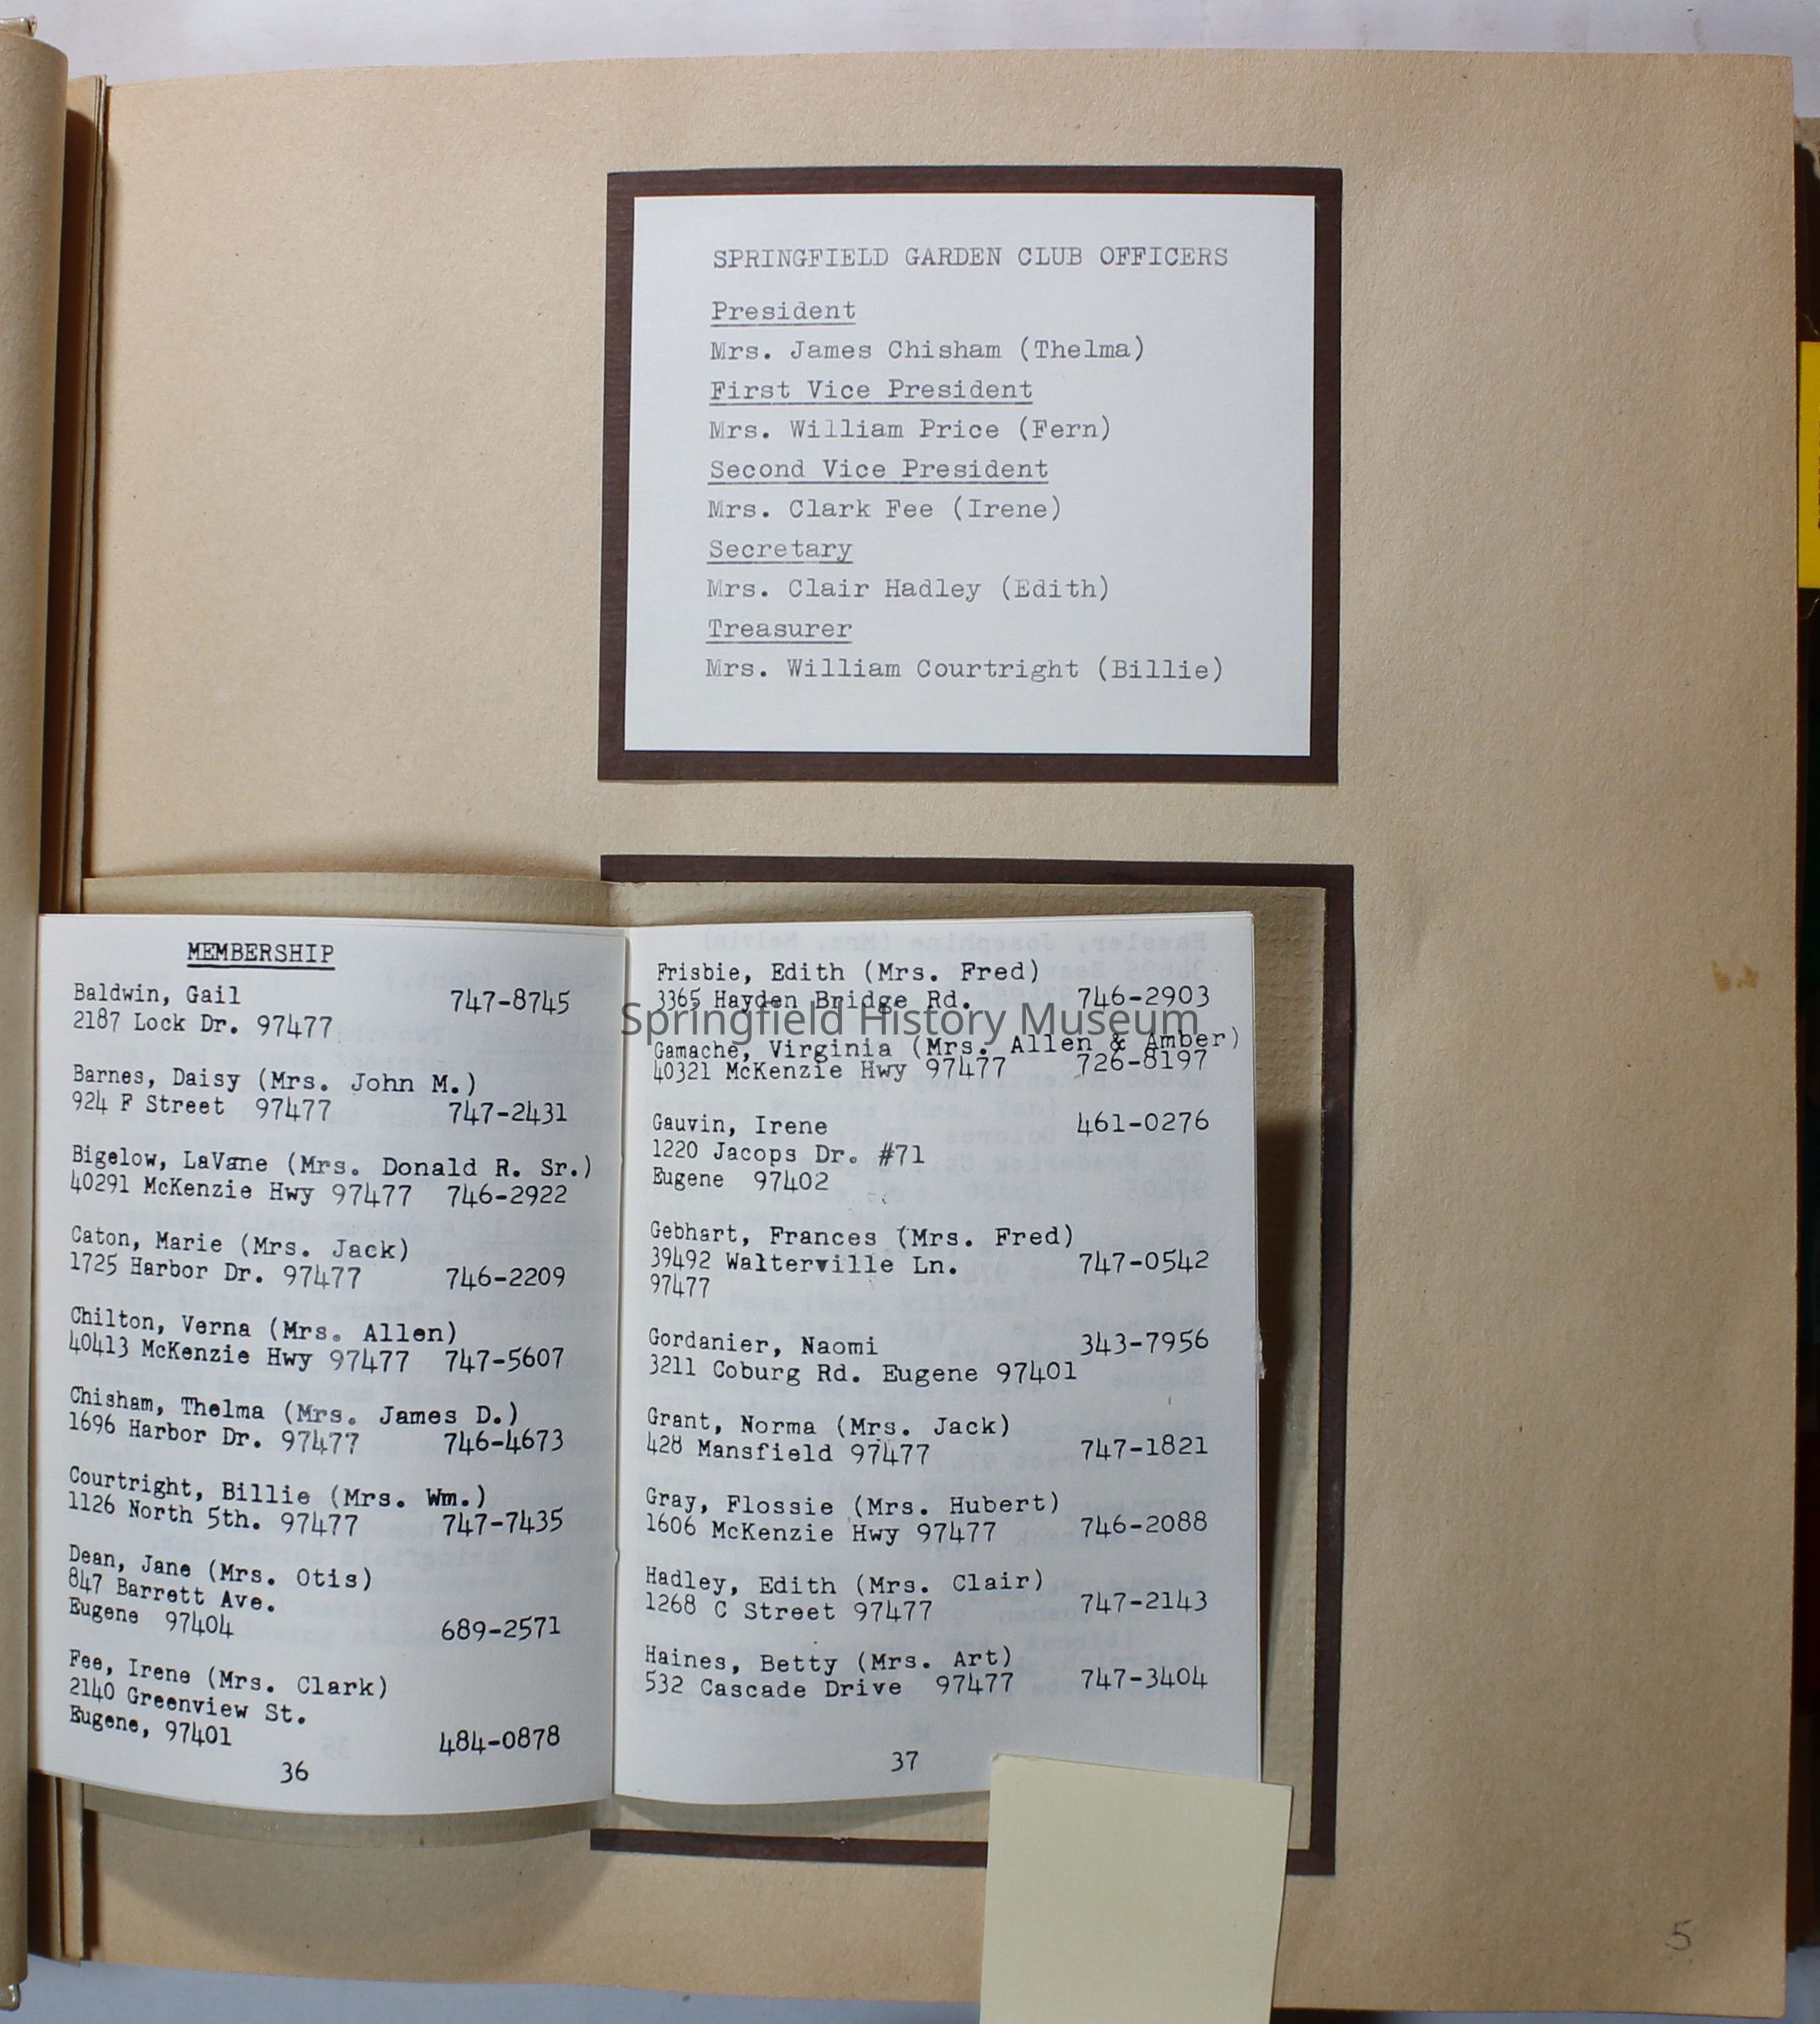 SPRINGFIELD GARDEN CLUB OFFICERS
President
Mrs. James Chisham (Thelma)
First Vice President
Mrs. William Price (Fern)
Second Vice President
Mrs. Clark Fee (Irene)
Secretary
Mrs. Clair Hadley (Edith)
Treasurer
Mrs. William Courtright (Billie)
MEMBERSHIP
Baldwin, Gail 747-8745
2187 Lock Dr. 97477
Barnes, Daisy (Mrs. John M.)
924 F Street 97477 747-2431
Bigelow, LaVane (Mrs. Donald R. Sr.)
40291 McKenzie Hwy 97477 746-2922
Caton, Marie (Mrs. Jack)
1725 Harbor Dr. 97477 746-2209
Chilton, Verna (Mrs. Allen)
40413 McKenzie Hwy 97477 747-5607
Chisham, Thelma (Mrs. James D.)
1696 Harbor Dr. 97477 746-4673
Courtright, Billie (Mrs. Wm.)
1126 North 5th. 97477 747-7435
Dean, Jane (Mrs. Otis)
847 Barrett Ave.
Eugene 97404 689-2571
Fee, Irene (Mrs. Clark)
2140 Greenview St.
Eugene, 97401 484-0878
36
Frisbie, Edith (Mrs. Fred)
3365 Hayden Bridge Rd. 746-2903
Springfield History Museum
Gamache, Virginia (Mrs. Allen & Amber)
40321 McKenzie Hwy 97477 726-8197
Gauvin, Irene 461-0276
1220 Jacops Dr. #71
Eugene 97402
Gebhart, Frances (Mrs. Fred)
39492 Walterville Ln. 747-0542
97477
Gordanier, Naomi 343-7956
3211 Coburg Rd. Eugene 97401
Grant, Norma (Mrs. Jack)
428 Mansfield 97477 747-1821
Gray, Flossie (Mrs. Hubert)
1606 McKenzie Hwy 97477 746-2088
Hadley, Edith (Mrs. Clair)
1268 C Street 97477 747-2143
Haines, Betty (Mrs. Art)
532 Cascade Drive 97477 747-3404
37
5